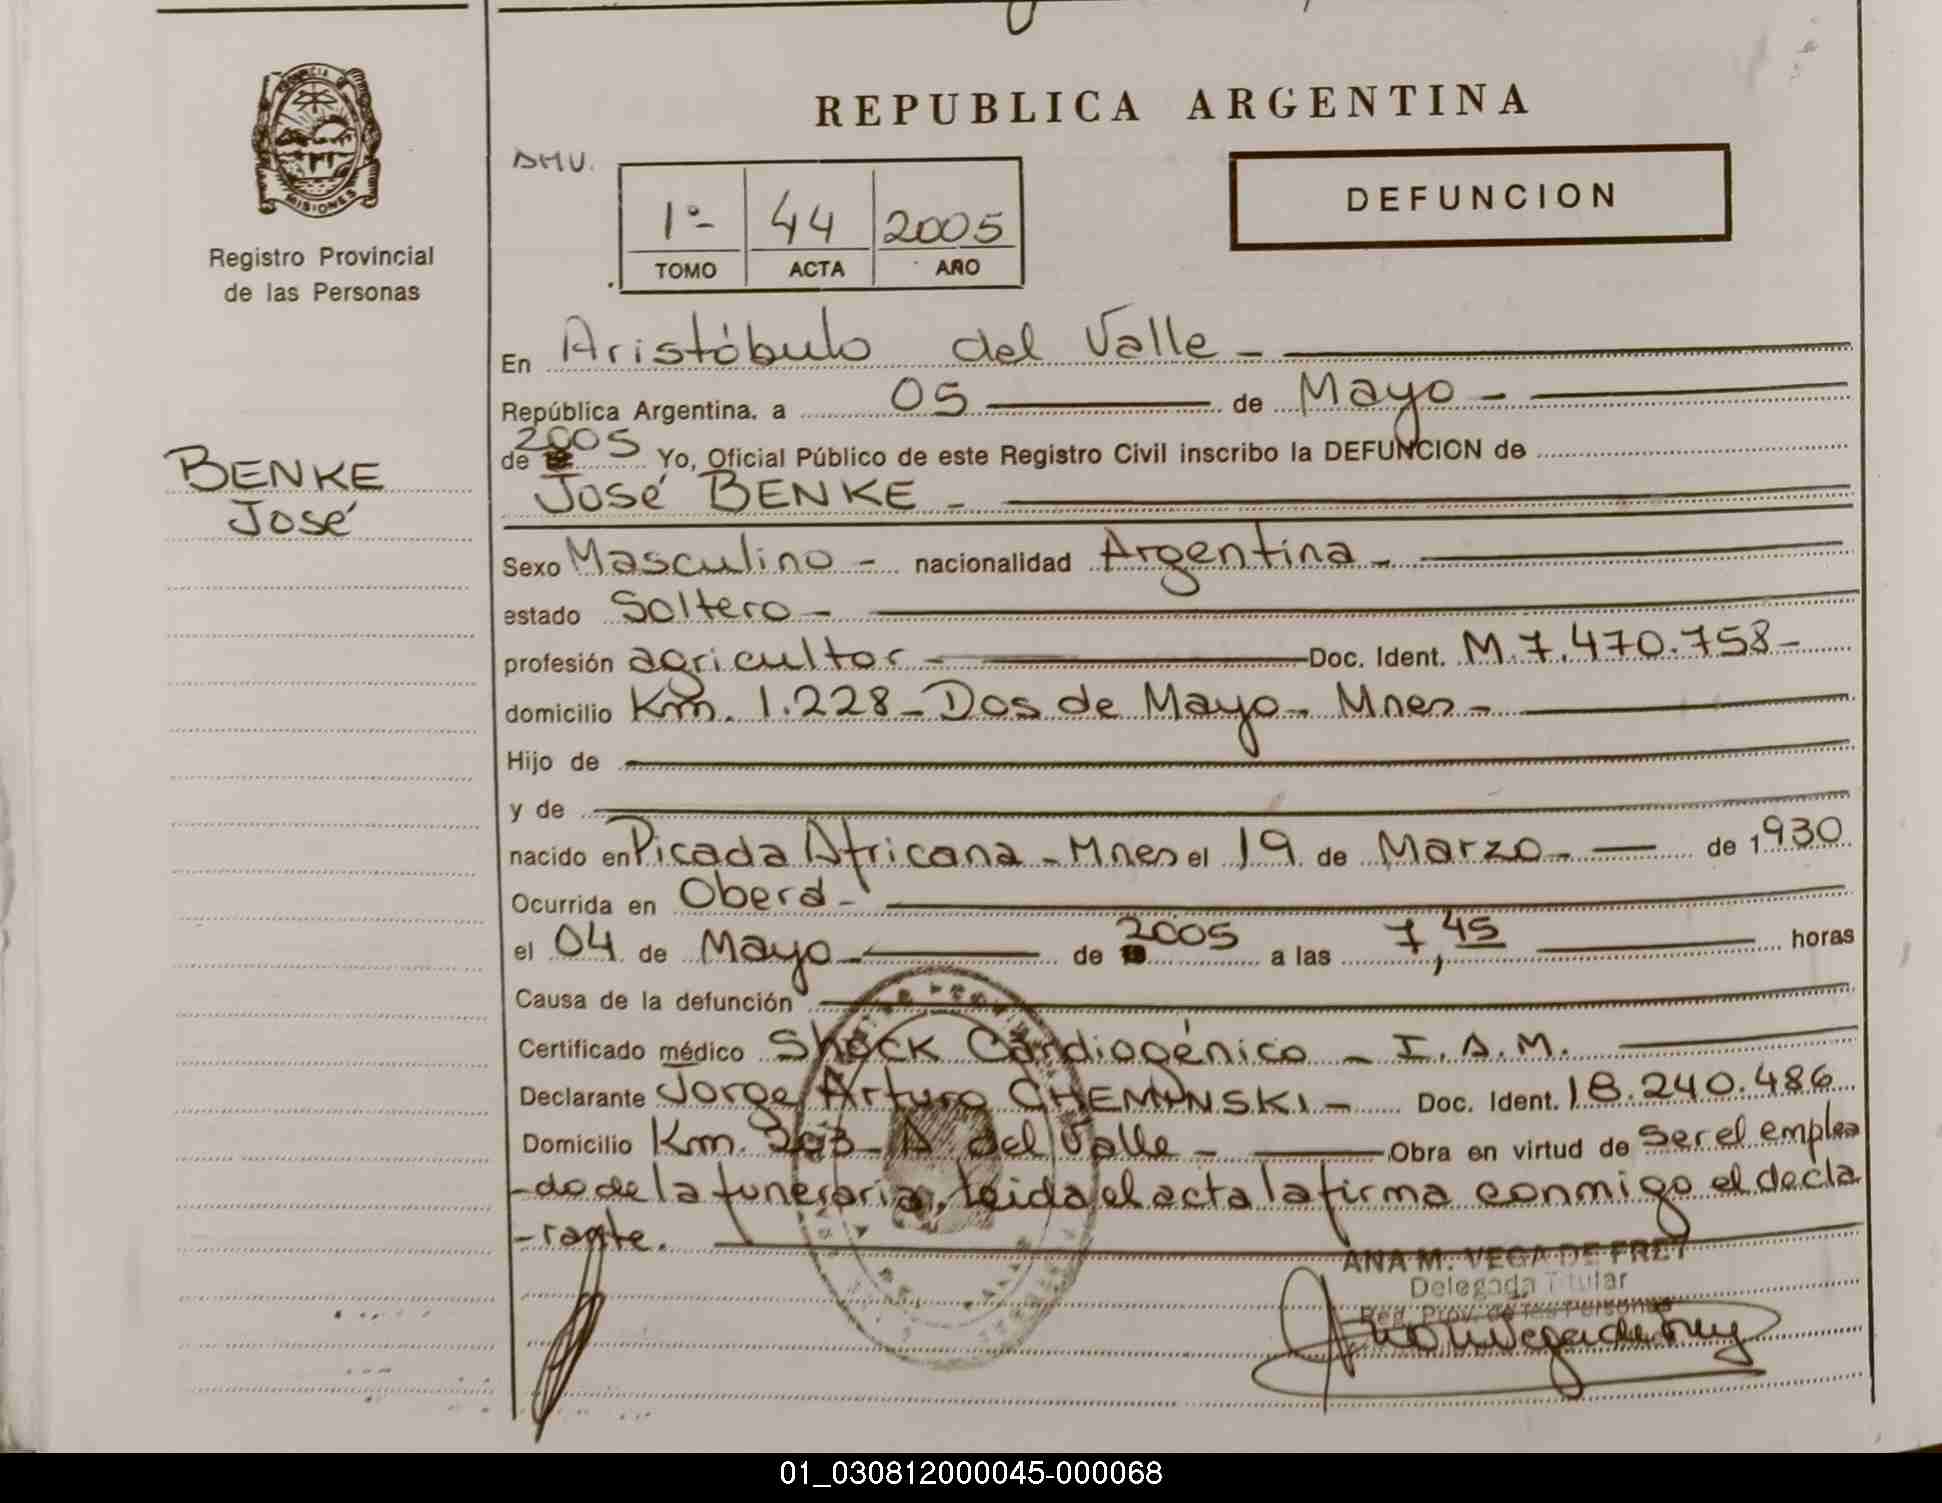 REPUBLICA ARGENTINA
MISIONES
Registro Provincial
de las Personas
DMV.
1º- 44 2005
TOMO ACTA AÑO
DEFUNCION
BENKE
José
En Aristóbulo del Valle -
República Argentina. a 05 de Mayo -
de 2005 Yo, Oficial Público de este Registro Civil inscribo la DEFUNCION de
José BENKE -
Sexo Masculino - nacionalidad Argentina -
estado Soltero -
profesión agricultor - Doc. Ident. M.7.470.758-
domicilio Km. 1.228 - Dos de Mayo - Mnes -
Hijo de
y de
nacido en Picada Africana - Mnes el 19 de Marzo - de 1930
Ocurrida en Oberá -
el 04 de Mayo - de 2005 a las 7,45 horas
Causa de la defunción
Certificado médico Shock Cardiogénico - I.A.M.
Declarante Jorge Arturo CHEMINSKI - Doc. Ident. 18.240.486
Domicilio Km. 303 - A del Valle - Obra en virtud de ser el emplea
-do de la funeraria, leida el acta la firma conmigo el decla
-rante.
ANA M. VEGA DE FREY
Delegada Titular
Reg. Prov. de las Personas
01_030812000045-000068